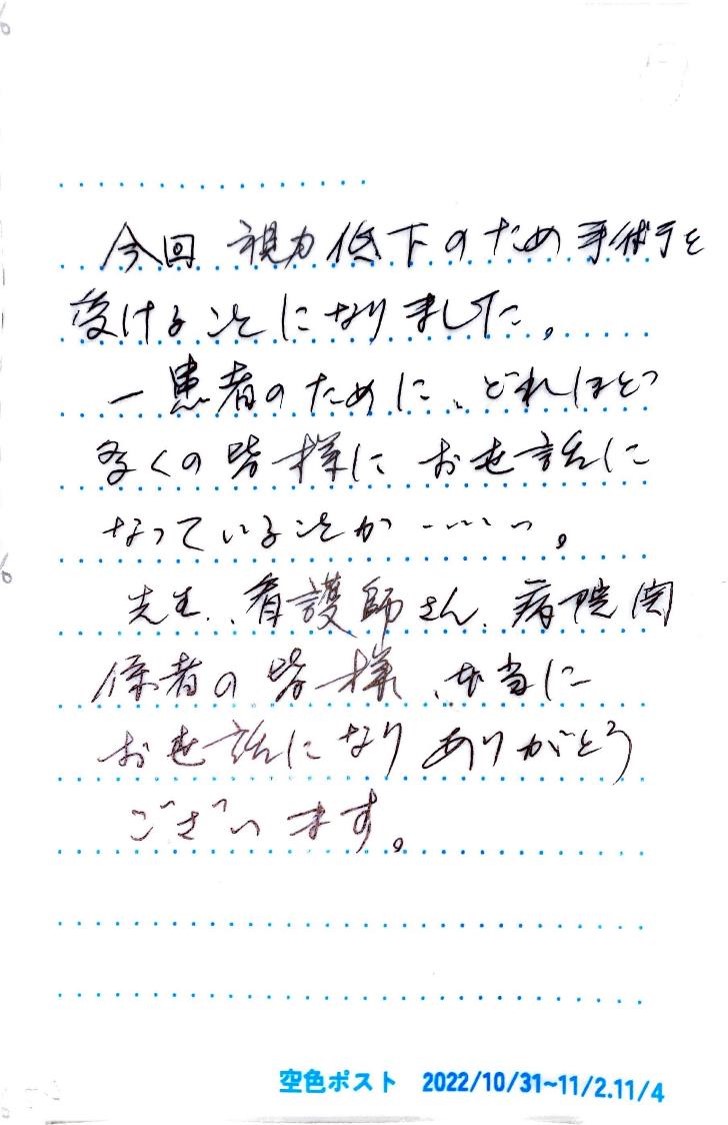 今回 視力低下のため手術を
受けることになりました。
一患者のために、どれほど
多くの皆様に お世話に
なっていることか……。
先生、看護師さん、病院関
係者の皆様、本当に
お世話になり ありがとう
ございます。
空色ポスト 2022/10/31~11/2.11/4